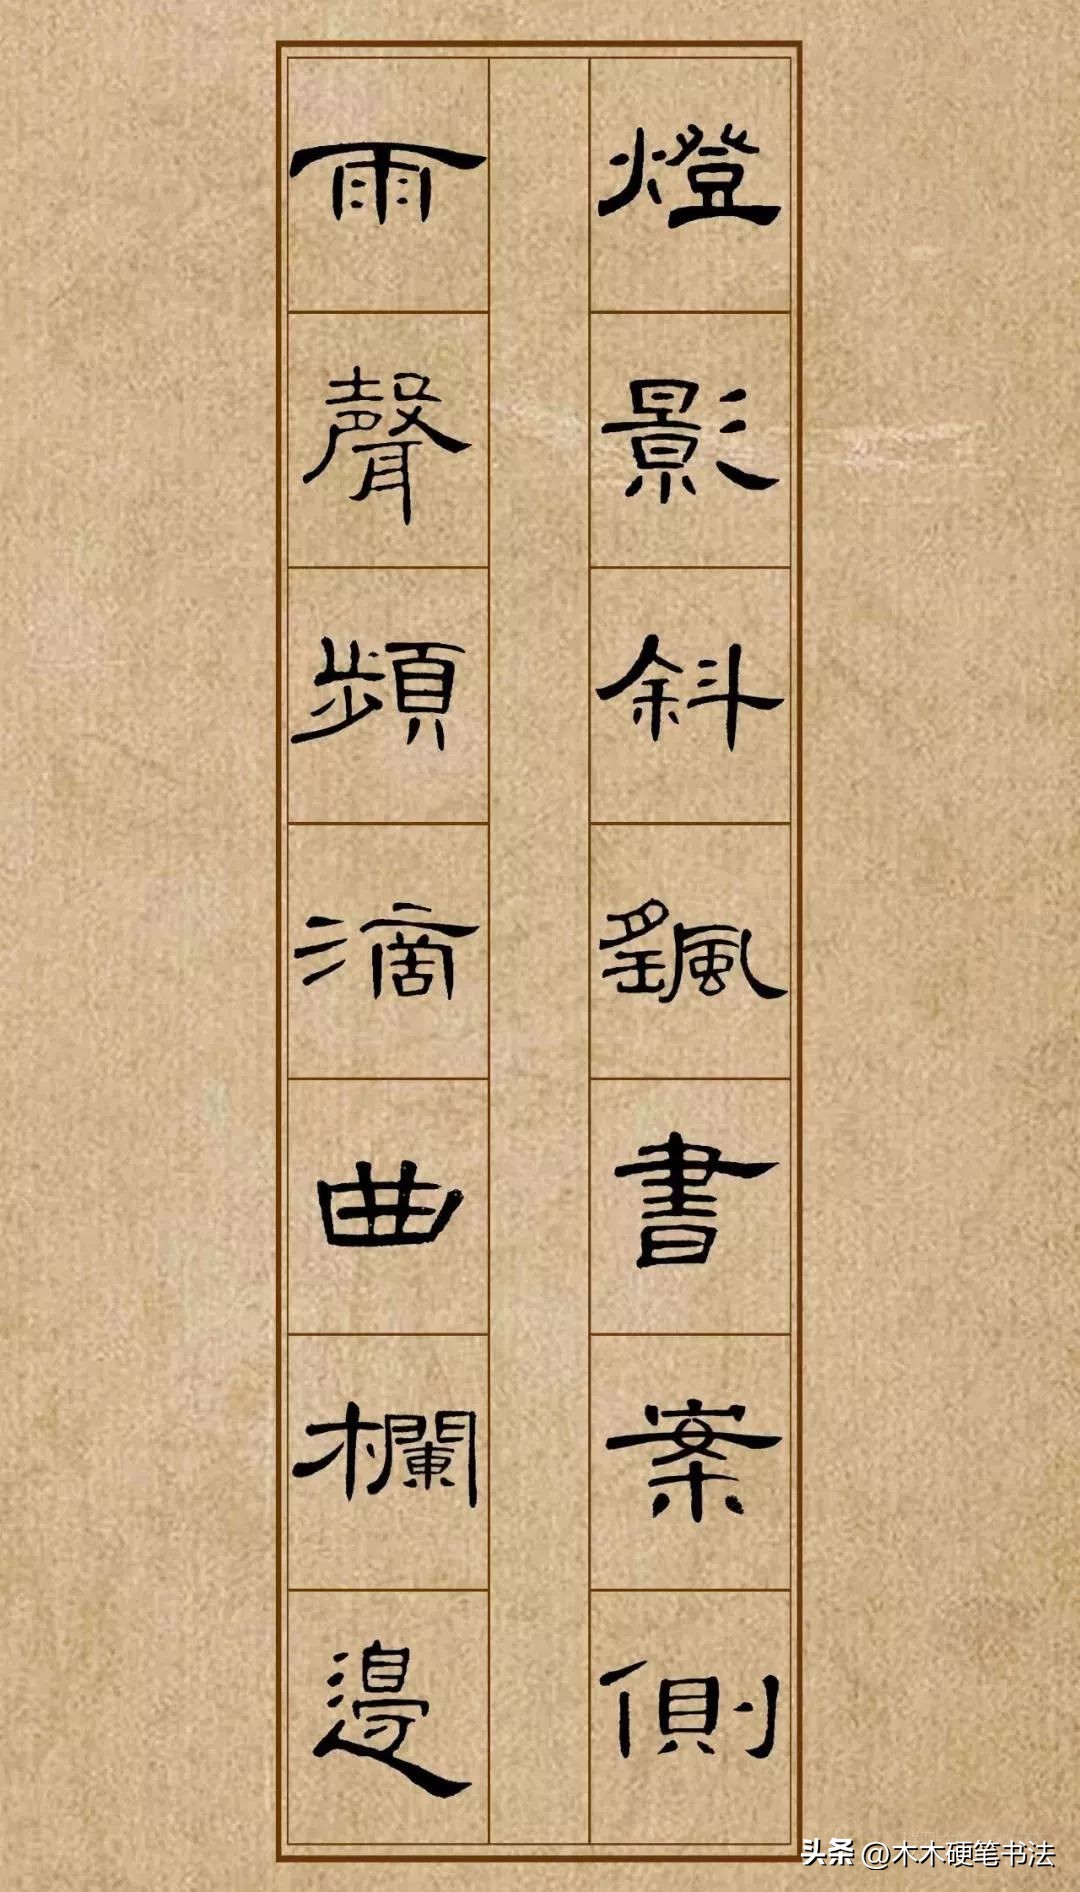 燈影斜颻書案側
雨聲頻滴曲欄邊
头条 @木木硬笔书法